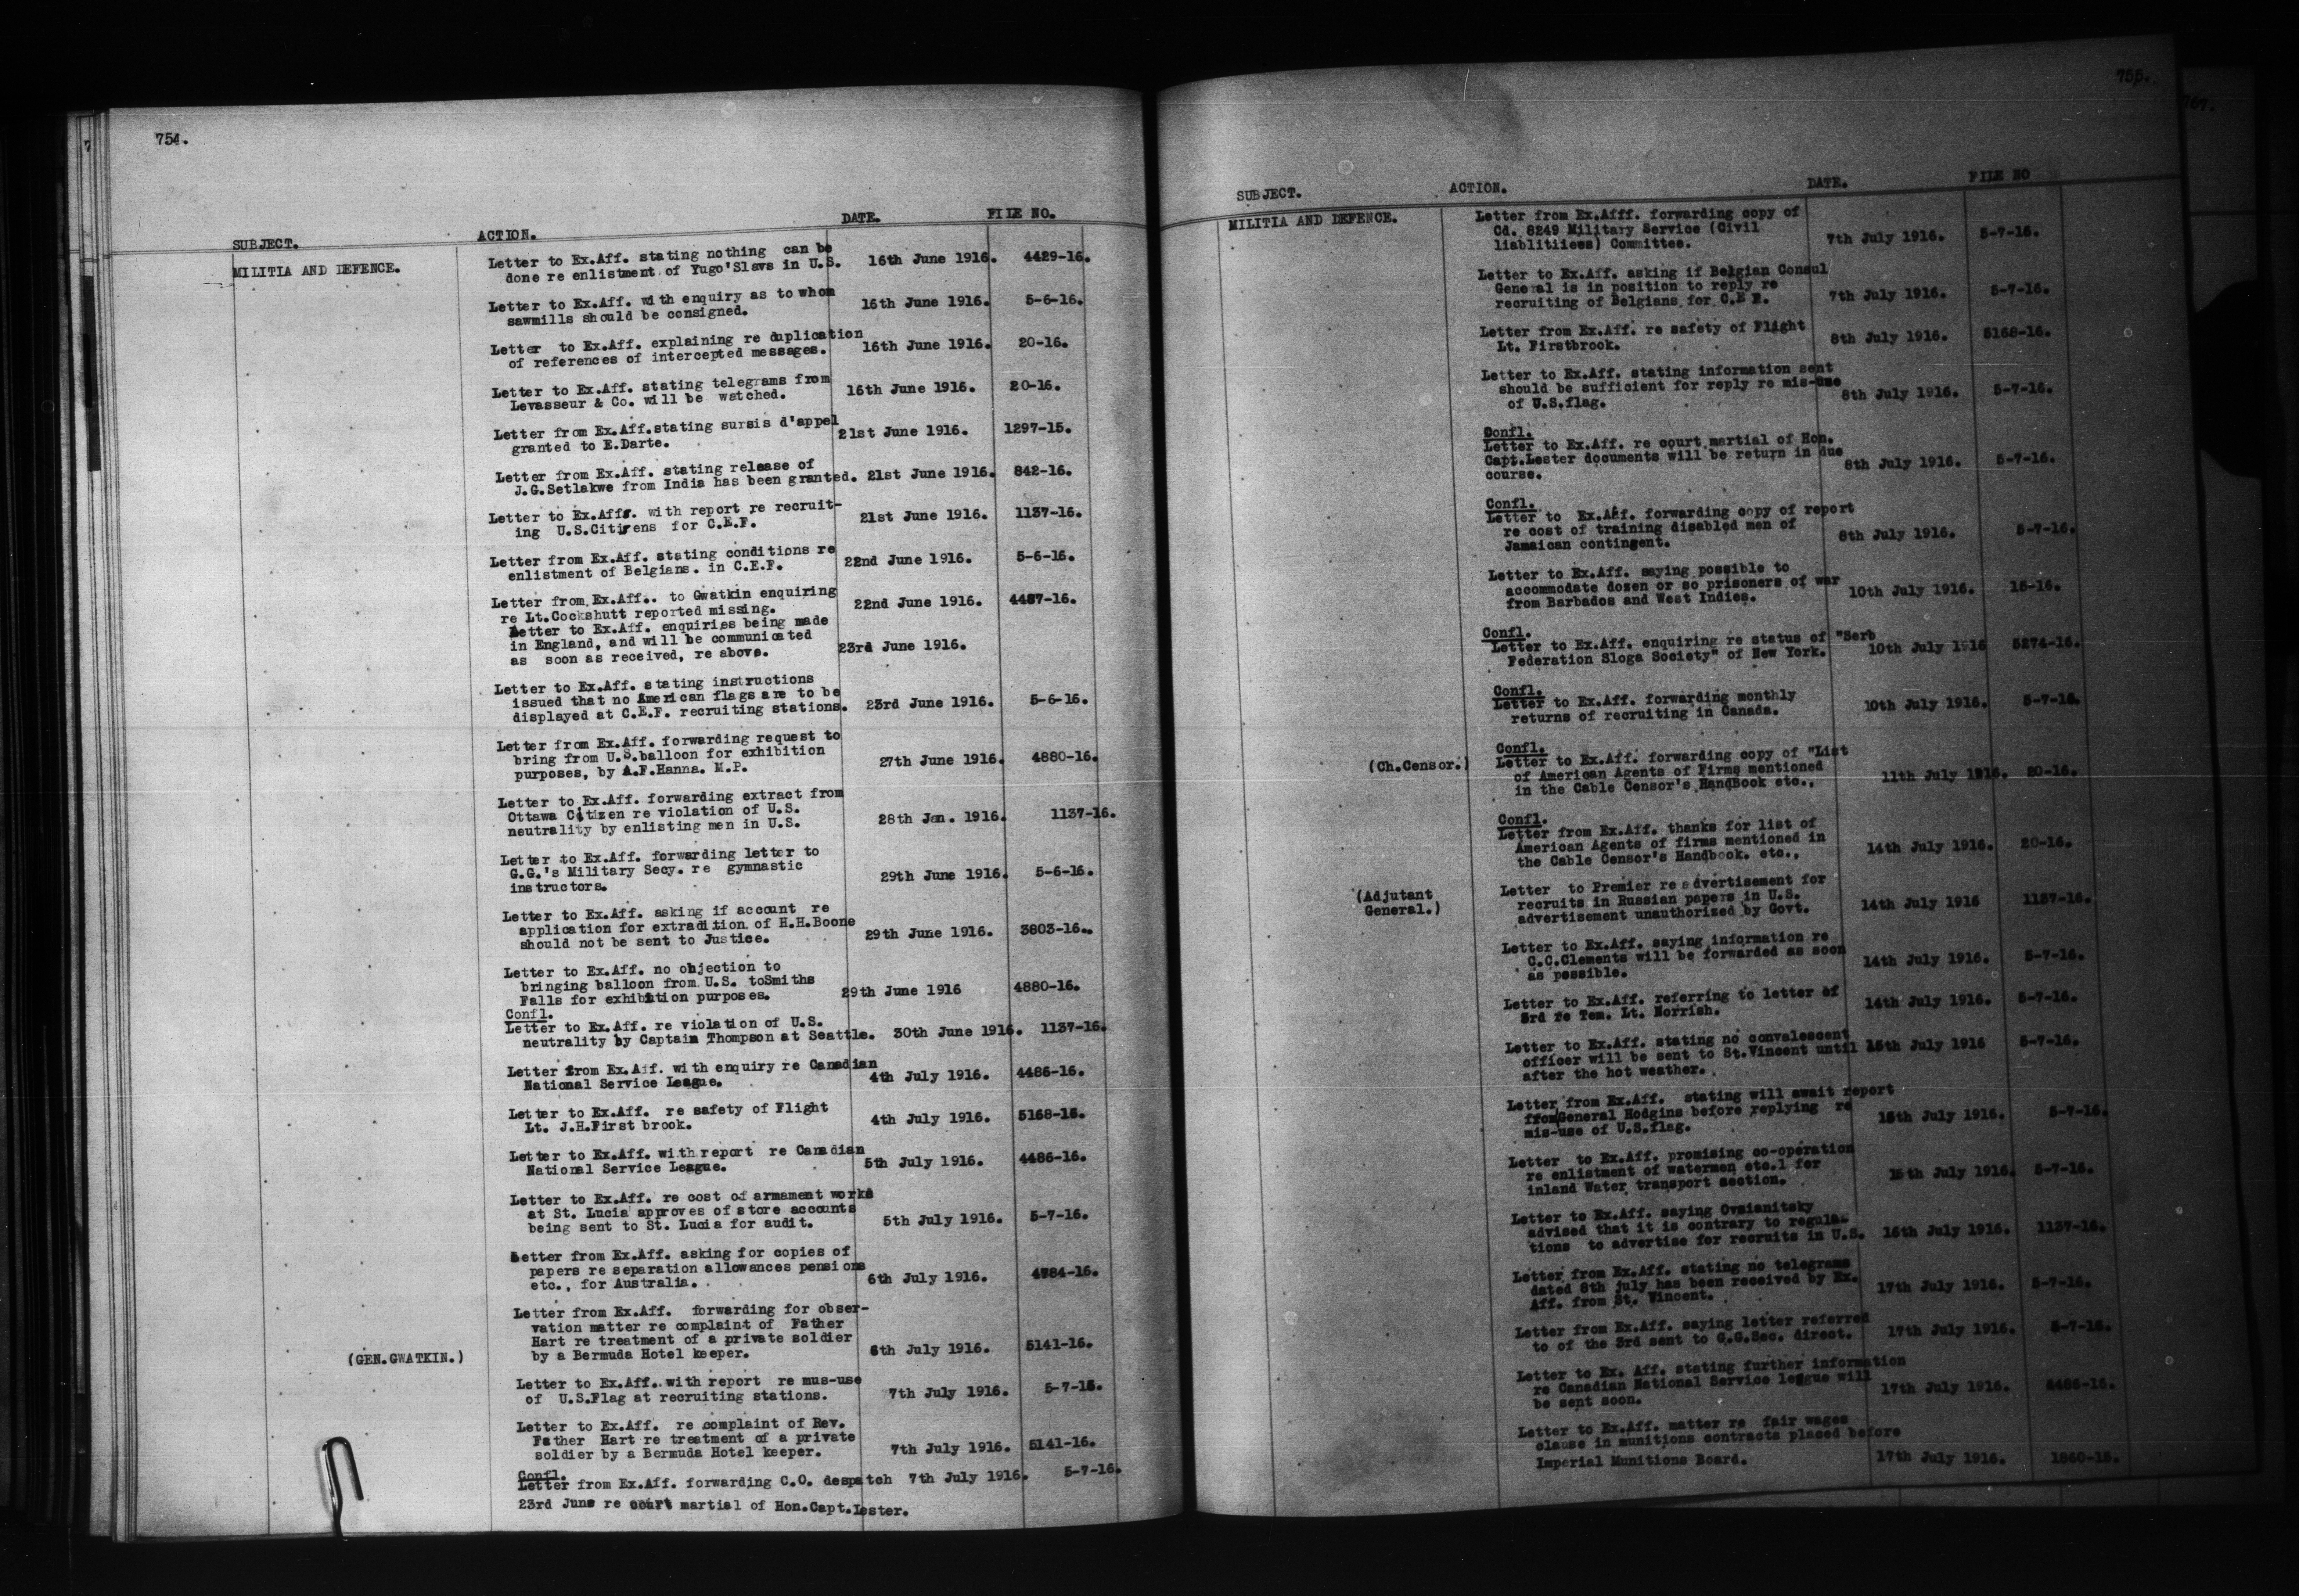 754.
SUBJECT. ACTION. DATE. FILE NO.
MILITIA AND DEFENCE.
Letter to Ex.Aff. stating nothing can be
done re enlistment of Yugo'Slavs in U.S. 16th June 1916. 4429-16.
Letter to Ex.Aff. with enquiry as to whom
sawmills should be consigned. 16th June 1916. 5-6-16.
Letter to Ex.Aff. explaining re duplication
of references of intercepted messages. 16th June 1916. 20-16.
Letter to Ex.Aff. stating telegrams from
Levasseur & Co. will be watched. 16th June 1916. 20-16.
Letter from Ex.Aff.stating sursis d'appel
granted to E.Darte. 21st June 1916. 1297-15.
Letter from Ex.Aff. stating release of
J.G.Setlakwe from India has been granted. 21st June 1916. 842-16.
Letter to Ex.Affs. with report re recruit-
ing U.S.Citizens for C.E.F. 21st June 1916. 1137-16.
Letter from Ex.Aff. stating conditions re
enlistment of Belgians. in C.E.F. 22nd June 1916. 5-6-16.
Letter from Ex.Aff.. to Gwatkin enquiring
re Lt.Cockshutt reported missing. 22nd June 1916. 4487-16.
Letter to Ex.Aff. enquiries being made
in England, and will be communicated
as soon as received, re above. 23rd June 1916.
Letter to Ex.Aff. stating instructions
issued that no American flags are to be
displayed at C.E.F. recruiting stations. 23rd June 1916. 5-6-16.
Letter from Ex.Aff. forwarding request to
bring from U.S.balloon for exhibition
purposes, by A.F.Hanna. M.P. 27th June 1916. 4880-16.
Letter to Ex.Aff. forwarding extract from
Ottawa Citizen re violation of U.S.
neutrality by enlisting men in U.S. 28th Jan. 1916. 1137-16.
Letter to Ex.Aff. forwarding letter to
G.G.'s Military Secy. re gymnastic
instructors. 29th June 1916. 5-6-16.
Letter to Ex.Aff. asking if account re
application for extradition of H.H.Boone
should not be sent to Justice. 29th June 1916. 3803-16..
Letter to Ex.Aff. no objection to
bringing balloon from U.S. toSmiths
Falls for exhibition purposes. 29th June 1916 4880-16.
Confl.
Letter to Ex.Aff. re violation of U.S.
neutrality by Captain Thompson at Seattle. 30th June 1916. 1137-16.
Letter from Ex.Aff. with enquiry re Canadian
National Service League. 4th July 1916. 4486-16.
Letter to Ex.Aff. re safety of Flight
Lt. J.H.First brook. 4th July 1916. 5168-16.
Letter to Ex.Aff. with report re Canadian
National Service League. 5th July 1916. 4486-16.
Letter to Ex.Aff. re cost of armament works
at St. Lucia approves of store accounts
being sent to St. Lucia for audit. 5th July 1916. 5-7-16.
Letter from Ex.Aff. asking for copies of
papers re separation allowances pensions
etc., for Australia. 6th July 1916. 4784-16.
Letter from Ex.Aff. forwarding for obser-
vation matter re complaint of Father
Hart re treatment of a private soldier
(GEN.GWATKIN.) by a Bermuda Hotel keeper. 6th July 1916. 5141-16.
Letter to Ex.Aff. with report re mus-use
of U.S.Flag at recruiting stations. 7th July 1916. 5-7-16.
Letter to Ex.Aff. re complaint of Rev.
Father Hart re treatment of a private
soldier by a Bermuda Hotel keeper. 7th July 1916. 5141-16.
Confl.
Letter from Ex.Aff. forwarding C.O. despatch 7th July 1916. 5-7-16.
23rd June re court martial of Hon.Capt.Lester.
755.
767.
SUBJECT. ACTION. DATE. FILE NO
MILITIA AND DEFENCE.
Letter from Ex.Afff. forwarding copy of
Cd. 8249 Military Service (Civil
liablitiiees) Committee. 7th July 1916. 5-7-16.
Letter to Ex.Aff. asking if Belgian Consul
General is in position to reply re
recruiting of Belgians for C.E F. 7th July 1916. 5-7-16.
Letter from Ex.Aff. re safety of Flight
Lt. Firstbrook. 8th July 1916. 5168-16.
Letter to Ex.Aff. stating information sent
should be sufficient for reply re mis-use
of U.S.flag. 8th July 1916. 5-7-16.
Confl.
Letter to Ex.Aff. re court martial of Hon.
Capt.Lester documents will be return in due
course. 8th July 1916. 5-7-16.
Confl.
Letter to Ex.Aff. forwarding copy of report
re cost of training disabled men of
Jamaican contingent. 8th July 1916. 5-7-16.
Letter to Ex.Aff. saying possible to
accommodate dozen or so prisoners of war
from Barbados and West Indies. 10th July 1916. 15-16.
Confl.
Letter to Ex.Aff. enquiring re status of "Serb
Federation Sloga Society" of New York. 10th July 1916 5274-16.
Confl.
Letter to Ex.Aff. forwarding monthly
returns of recruiting in Canada. 10th July 1916. 5-7-16.
Confl.
(Ch.Censor.) Letter to Ex.Aff. forwarding copy of "List
of American Agents of Firms mentioned
in the Cable Censor's HandBook etc., 11th July 1916. 20-16.
Confl.
Letter from Ex.Aff. thanks for list of
American Agents of firms mentioned in
the Cable Censor's Handbook. etc., 14th July 1916. 20-16.
(Adjutant
General.)
Letter to Premier re advertisement for
recruits in Russian papers in U.S.
advertisement unauthorized by Govt. 14th July 1916 1137-16.
Letter to Ex.Aff. saying information re
C.C.Clements will be forwarded as soon
as possible. 14th July 1916. 5-7-16.
Letter to Ex.Aff. referring to letter of
3rd re Tem. Lt. Norrish. 14th July 1916. 5-7-16.
Letter to Ex.Aff. stating no convalescent
officer will be sent to St.Vincent until 15th July 1916 5-7-16.
after the hot weather.
Letter from Ex.Aff. stating will await report
from General Hodgins before replying re
mis-use of U.S.flag. 15th July 1916. 5-7-16.
Letter to Ex.Aff. promising co-operation
re enlistment of watermen etc.l for
inland Water transport section. 15th July 1916. 5-7-16.
Letter to Ex.Aff. saying Ovsianitsky
advised that it is contrary to regula-
tions to advertise for recruits in U.S. 16th July 1916. 1137-16.
Letter from Ex.Aff. stating no telegrams
dated 8th july has been received by Ex.
Aff. from St. Vincent. 17th July 1916. 5-7-16.
Letter from Ex.Aff. saying letter referred
to of the 3rd sent to G.G.Sec. direct. 17th July 1916. 5-7-16.
Letter to Ex. Aff. stating further information
re Canadian National Service league will
be sent soon. 17th July 1916. 4486-16.
Letter to Ex.Aff. matter re fair wages
clause in munitions contracts placed before
Imperial Munitions Board. 17th July 1916. 1860-15.